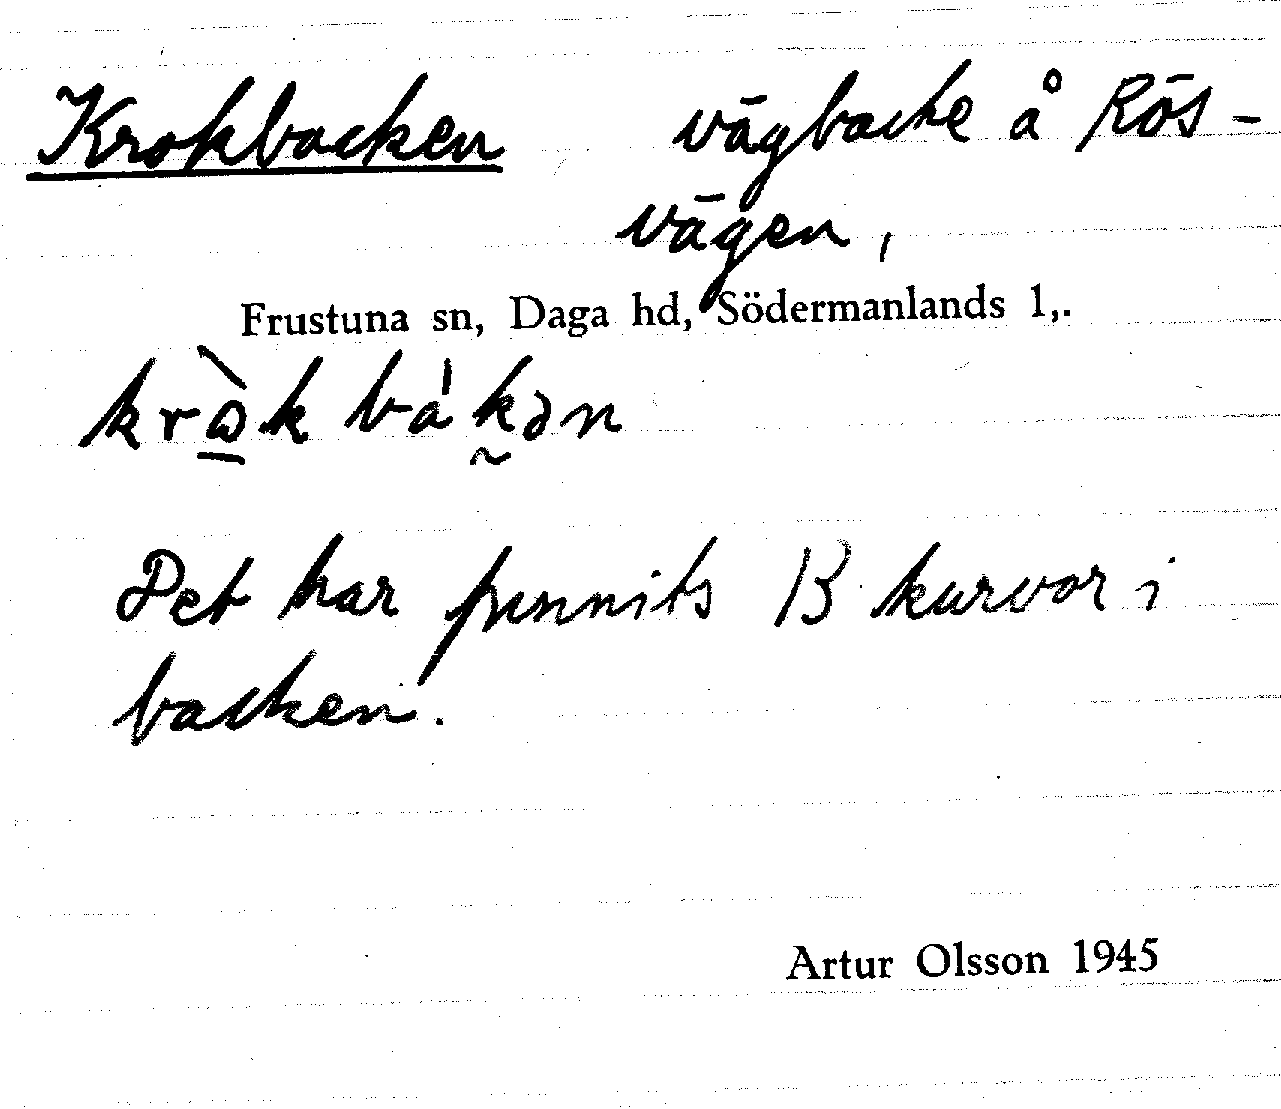 Krokbacken vägbacke å Rös-
vägen,
Frustuna sn, Daga hd, Södermanlands l,.
krὼk bákən
Det har funnits 13 kurvor i
backen.
Artur Olsson 1945